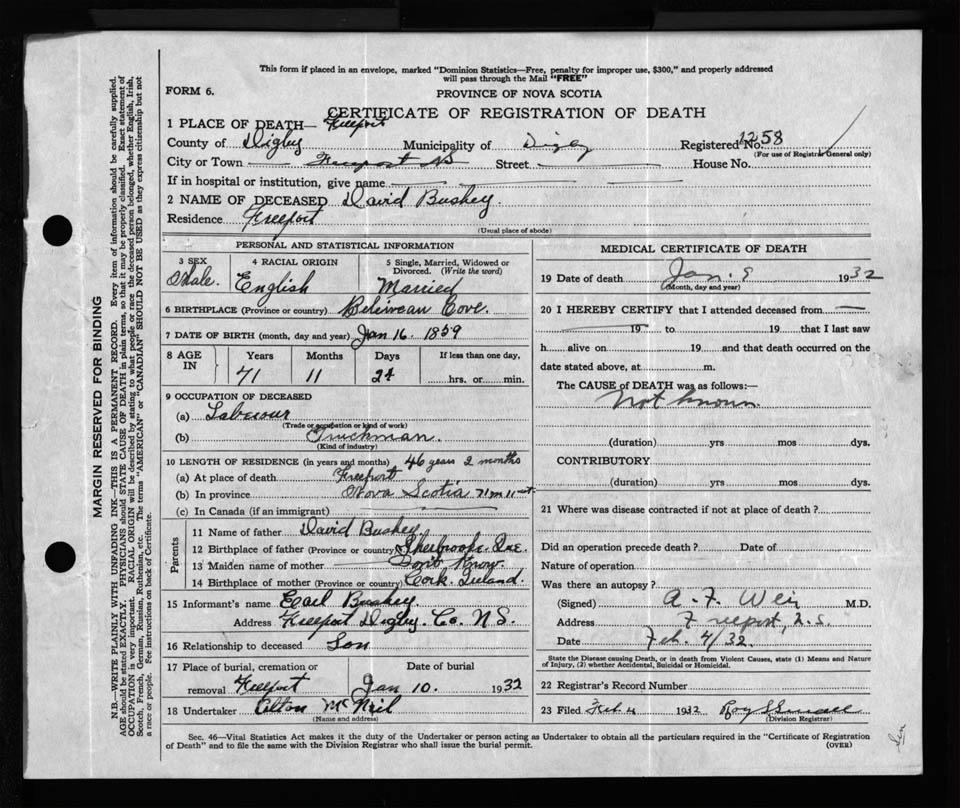 This form if placed in an envelope, marked "Dominion Statistics—Free, penalty for improper use, $300," and properly addressed
will pass through the Mail "FREE"
FORM 6.
PROVINCE OF NOVA SCOTIA
CERTIFICATE OF REGISTRATION OF DEATH
1 PLACE OF DEATH— Freeport
County of Digby Municipality of Digby Registered No. 1258
(For use of Registrar General only)
City or Town Freeport NS Street House No.
If in hospital or institution, give name
2 NAME OF DECEASED David Bushey.
Residence Freeport
(Usual place of abode)
PERSONAL AND STATISTICAL INFORMATION
3 SEX 4 RACIAL ORIGIN 5 Single, Married, Widowed or
Divorced. (Write the word)
Male. English Married
6 BIRTHPLACE (Province or country) Beliveau Cove.
7 DATE OF BIRTH (month, day and year) Jan 16. 1859
8 AGE IN Years Months Days If less than one day,
71 11 24 hrs. or min.
9 OCCUPATION OF DECEASED
(a) Labeiour
(Trade or occupation or kind of work)
(b) Truckman.
(Kind of industry)
10 LENGTH OF RESIDENCE (in years and months) 46 years 2 months
(a) At place of death Freeport
(b) In province Nova Scotia 71 11
(c) In Canada (if an immigrant)
Parents
11 Name of father David Bushey
12 Birthplace of father (Province or country) Sherbrooke Que.
13 Maiden name of mother Dont Know.
14 Birthplace of mother (Province or country) Cork. Ireland.
15 Informant's name Earl Bushey
Address Freeport Digby. Co. N S.
16 Relationship to deceased Son
17 Place of burial, cremation or Date of burial
removal Freeport Jan 10. 1932
18 Undertaker Alton McNeil
(Name and address)
MEDICAL CERTIFICATE OF DEATH
19 Date of death Jan. 9 1932
(Month, day and year)
20 I HEREBY CERTIFY that I attended deceased from
19 to 19 that I last saw
h alive on 19 and that death occurred on the
date stated above, at m.
The CAUSE of DEATH was as follows:—
Not known
(duration) yrs mos dys.
CONTRIBUTORY
(duration) yrs mos dys.
21 Where was disease contracted if not at place of death?
Did an operation precede death? Date of
Nature of operation
Was there an autopsy?
(Signed) A. F. Weir M.D.
Address Freeport, N.S.
Date Feb. 4/32.
State the Disease causing Death, or in death from Violent Causes, state (1) Means and Nature
of Injury, (2) whether Accidental, Suicidal or Homicidal.
22 Registrar's Record Number
23 Filed Feb 4 1932 Roy S Small
(Division Registrar)
Sec. 46—Vital Statistics Act makes it the duty of the Undertaker or person acting as Undertaker to obtain all the particulars required in the "Certificate of Registration
of Death" and to file the same with the Division Registrar who shall issue the burial permit. (OVER)
MARGIN RESERVED FOR BINDING
N.B.—WRITE PLAINLY WITH UNFADING INK—THIS IS A PERMANENT RECORD. Every item of information should be carefully supplied.
AGE should be stated EXACTLY. PHYSICIANS should STATE CAUSE OF DEATH in plain terms, so that it may be properly classified. Exact statement of
OCCUPATION is very important. RACIAL ORIGIN will be described by stating to what people or race the deceased person belonged, whether English, Irish,
Scotch, French, German, Russian, Ruthenian, etc. The terms "AMERICAN" or "CANADIAN" SHOULD NOT BE USED as they express citizenship but not
a race or people. Fee instructions on back of Certificate.